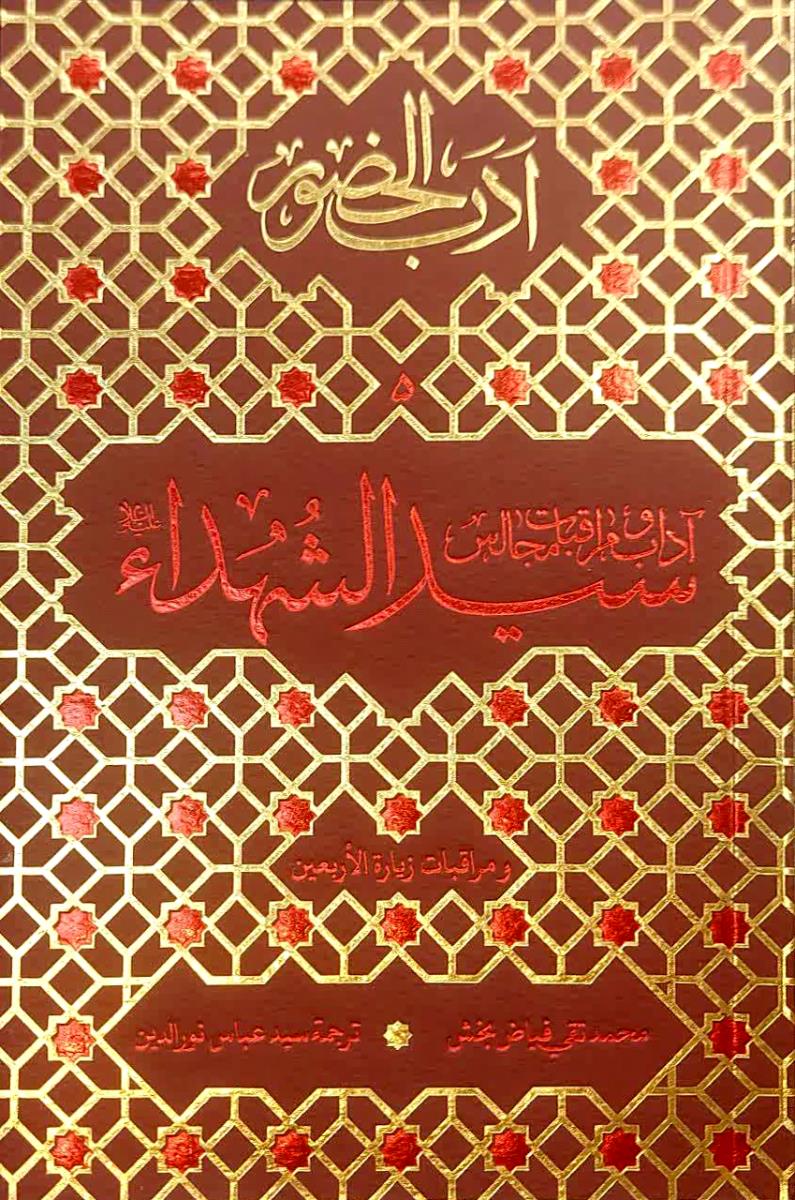 أدب الحضور
۵
آداب و مراقبات مجالس
سيد الشُهداء عليه السلام
و مراقبات زيارة الأربعين
محمد تقي فياض بخش
ترجمة سيد عباس نورالدين